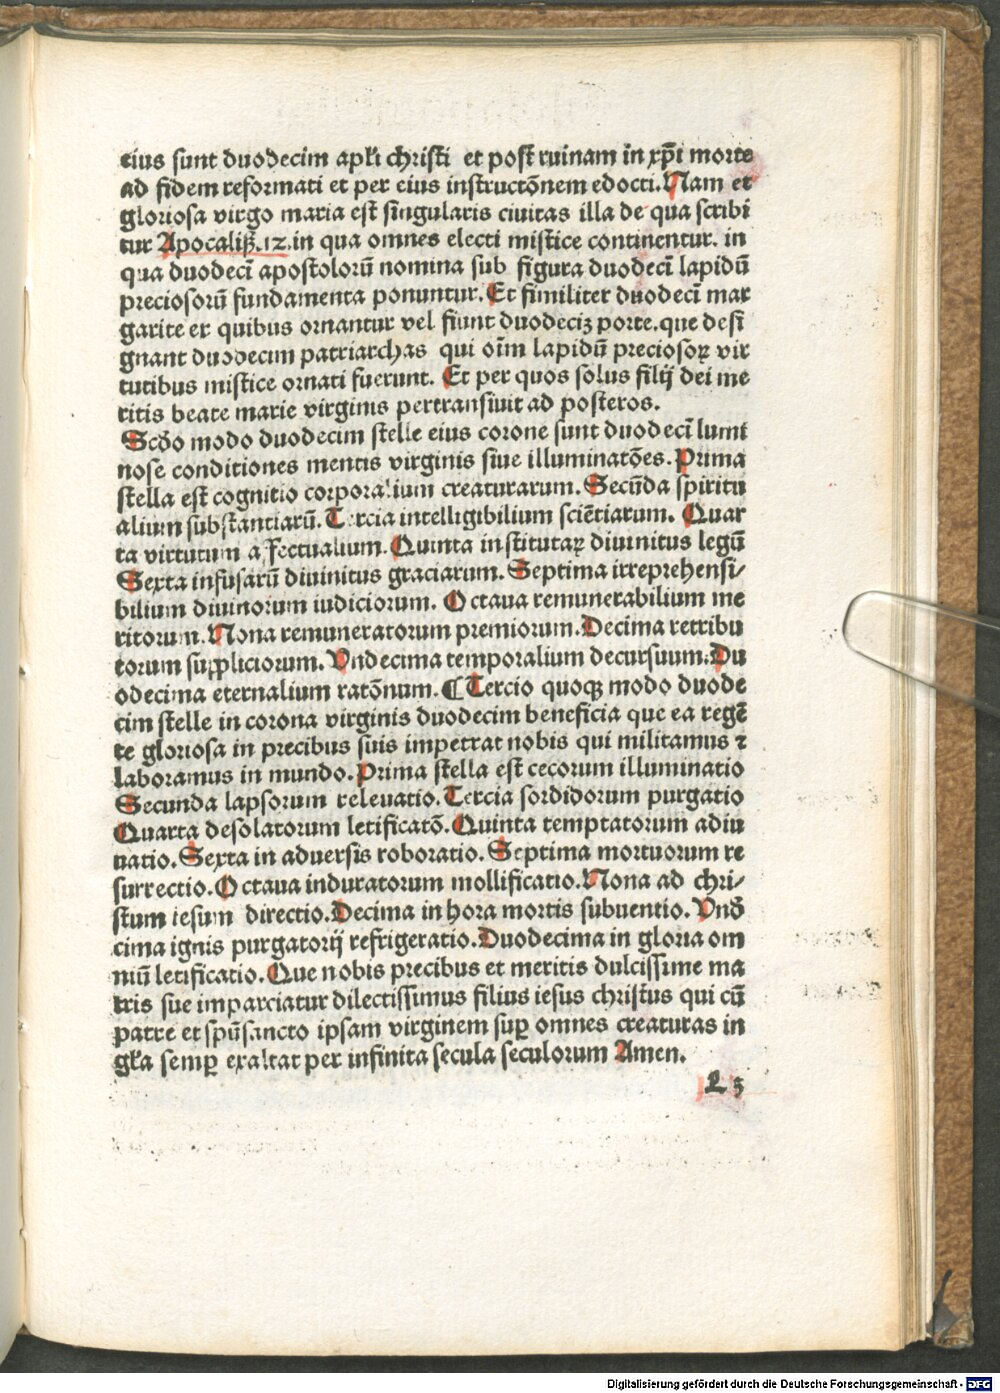 eius sunt duodecim apłi christi et post ruinam in xp̄i morte
ad fidem reformati et per eius instructōnem edocti. Nam et
gloriosa virgo maria est singularis ciuitas illa de qua scribi
tur Apocalip̄. 12. in qua omnes electi mistice continentur. in
qua duodecī apostolorū nomina sub figura duodecī lapidū
preciosorū fundamenta ponuntur. Et similiter duodecī mar
garite ex quibus ornantur vel fiunt duodeciʒ porte. que desi
gnant duodecim patriarchas qui oīm lapidū preciosoꝝ vir
tutibus mistice ornati fuerunt. Et per quos solus filij dei me
titis beate marie virginis pertransiuit ad posteros.
Scđo modo duodecim stelle eius corone sunt duodecī lumi
nose conditiones mentis virginis siue illuminatōes. Prima
stella est cognitio corporalium creaturarum. Secūda spiritu
alium substantiarū. Tercia intelligibilium sciētiarum. Quar
ta virtutum affectualium. Quinta institutaꝝ diuinitus legū
Sexta infusarū diuinitus graciarum. Septima irreprehensi/
bilium diuinorum iudiciorum. Octaua remunerabilium me
ritorum. Nona remuneratorum premiorum. Decima retribu
torum suppliciorum. Vndecima temporalium decursuum. Du
odecima eternalium ratōnum. ¶ Tercio quoqꝫ modo duode
cim stelle in corona virginis duodecim beneficia que ea regē
te gloriosa in precibus suis impetrat nobis qui militamus ⁊
laboramus in mundo. Prima stella est cecorum illuminatio
Secunda lapsorum releuatio. Tercia sordidorum purgatio
Quarta desolatorum letificatō. Quinta temptatorum adiu
uatio. Sexta in aduersis roboratio. Septima mortuorum re
surrectio. Octaua induratorum mollificatio. Nona ad chri/
stum iesum directio. Decima in hora mortis subuentio. Vnđ
cima ignis purgatorij refrigeratio. Duodecima in gloria om
niū letificatio. Que nobis precibus et meritis dulcissime ma
tris sue imparciatur dilectissimus filius iesus christus qui cū
patre et spūsancto ipsam virginem suꝑ omnes creaturas in
gła semꝑ exaltat per infinita secula seculorum Amen.
L 5
Digitalisierung gefördert durch die Deutsche Forschungsgemeinschaft - DFG